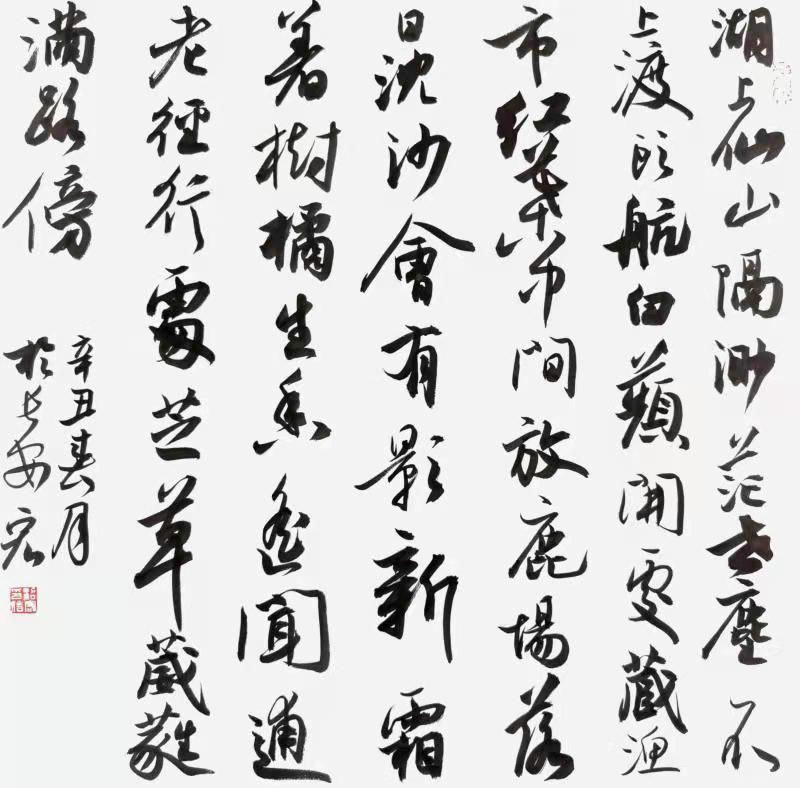 湖上仙山隔渺茫世塵不
上渡頭航白蘋開處藏漁
市紅葉中間放鹿場落
日沈沙會有影新霜
着樹橘生香遙聞逋
老徑行處芝草葳蕤
滿路傍
辛丑春月
於長安宏